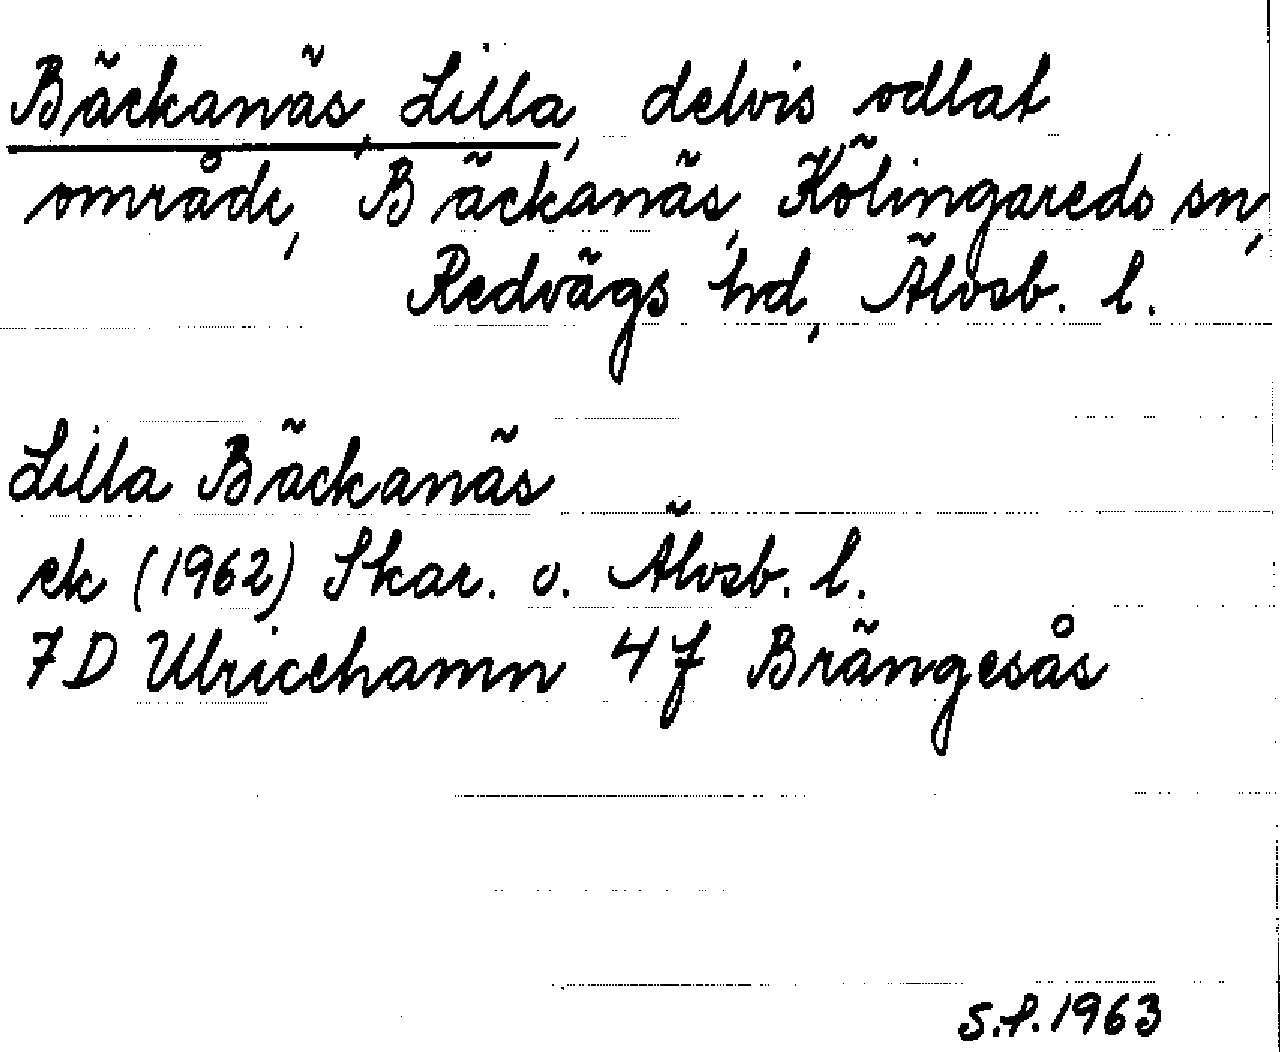 Bäckanäs, Lilla, delvis odlat
område, Bäckanäs, Kölingareds sn,
Redvägs hd, Älvsb. l.
Lilla Bäckanäs
ek (1962) Skar. o. Älvsb. l.
7D Ulricehamn 4f Brängesås
S.P. 1963